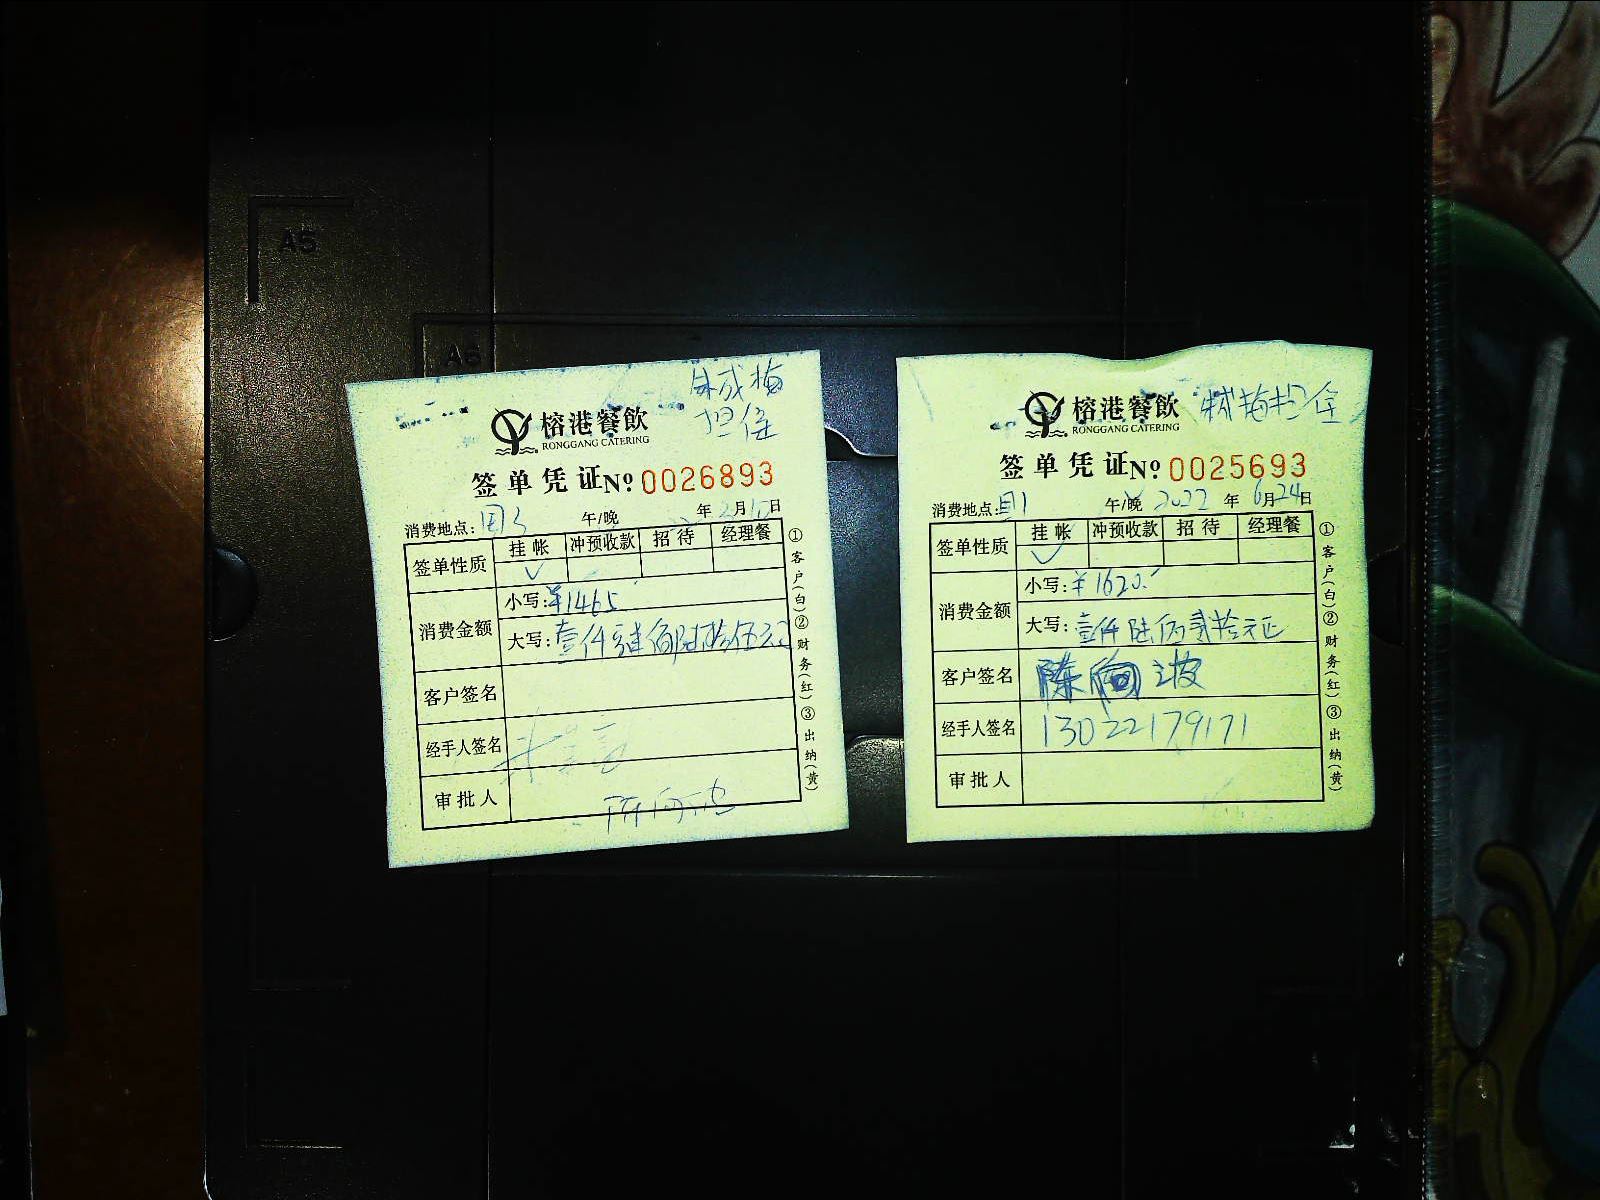 A5
A6
成梅
担保
榕港餐飲
RONGGANG CATERING
签单凭证№0026893
消费地点: 午/晚 年 2月 日
签单性质 挂帐 冲预收款 招待 经理餐
✓
消费金额 小写:¥1465
大写:壹仟肆佰陆拾伍元
客户签名
经手人签名
审批人
①客户(白)②财务(红)③出纳(黄)
榕港餐飲 梅担保
RONGGANG CATERING
签单凭证№0025693
消费地点: 午/晚 2022年6月24日
签单性质 挂帐 冲预收款 招待 经理餐
✓
消费金额 小写:¥1620.-
大写:壹仟陆佰贰拾元正
客户签名 陈 波
经手人签名 13022179171
审批人
①客户(白)②财务(红)③出纳(黄)